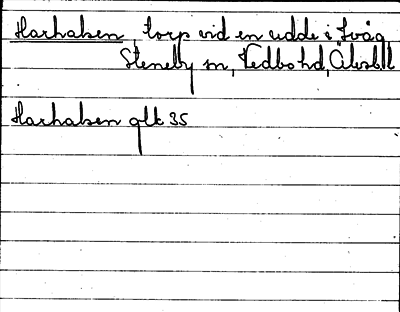 Harhaken, torp vid en udde i Iväg
Steneby sn, Vedbo hd, Älvsbl
Harhaken glk 35